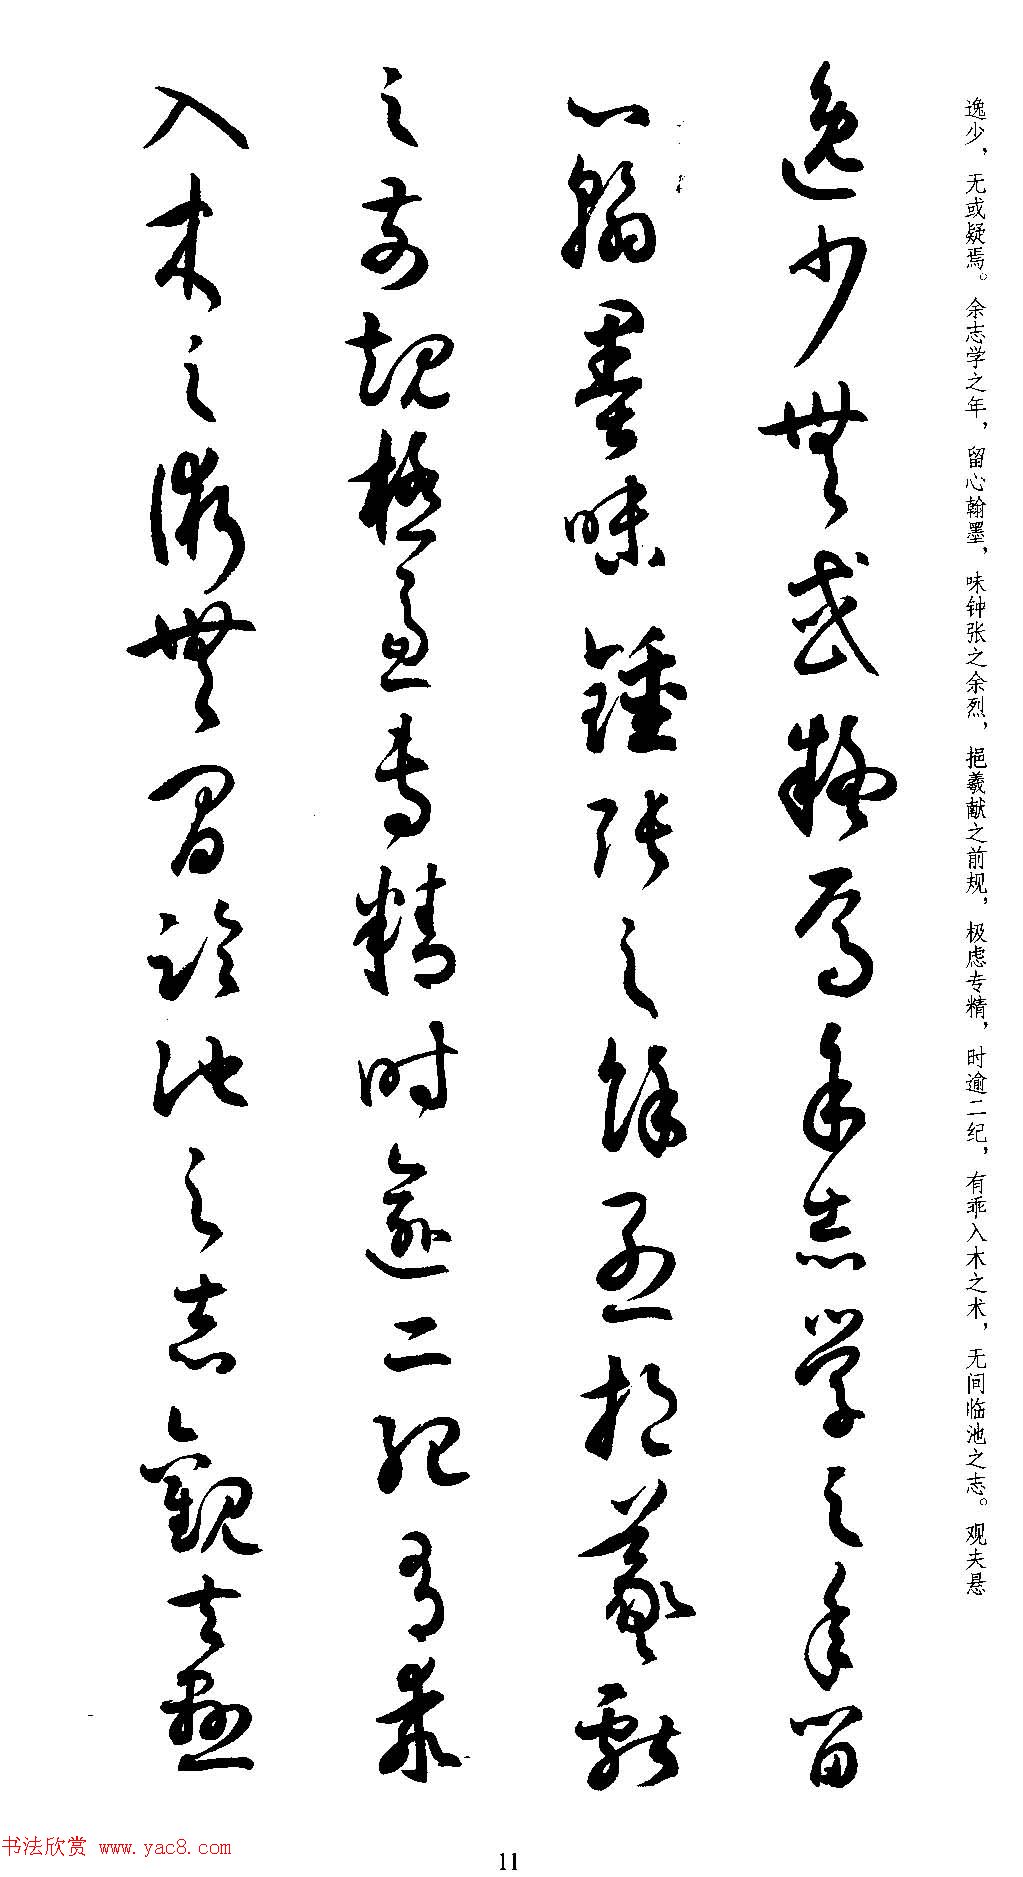 逸少，无或疑焉。余志学之年，留心翰墨，味钟张之余烈，挹羲献之前规，极虑专精，时逾二纪，有乖入木之术，无间临池之志。观夫悬
逸少無或疑焉余志學之年留
心翰墨味鍾張之餘烈挹羲獻
之前規極慮專精時逾二紀有乖
入木之術無間臨池之志觀夫懸
书法欣赏 www.yac8.com
11